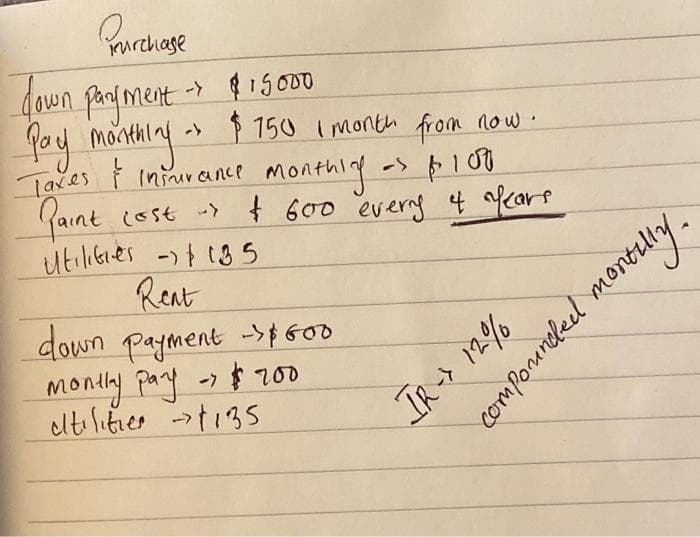 Purchase
down payment -> $15000
Pay monthly -> $ 750 1 month from now.
Taxes & insurance monthly -> $ 100
Paint cost -> $ 600 every 4 years
Utilities -> $ 135
Rent
down payment -> $600
montly pay -> $ 700
utilities -> $135
IR -> 12%
compounded montlly.